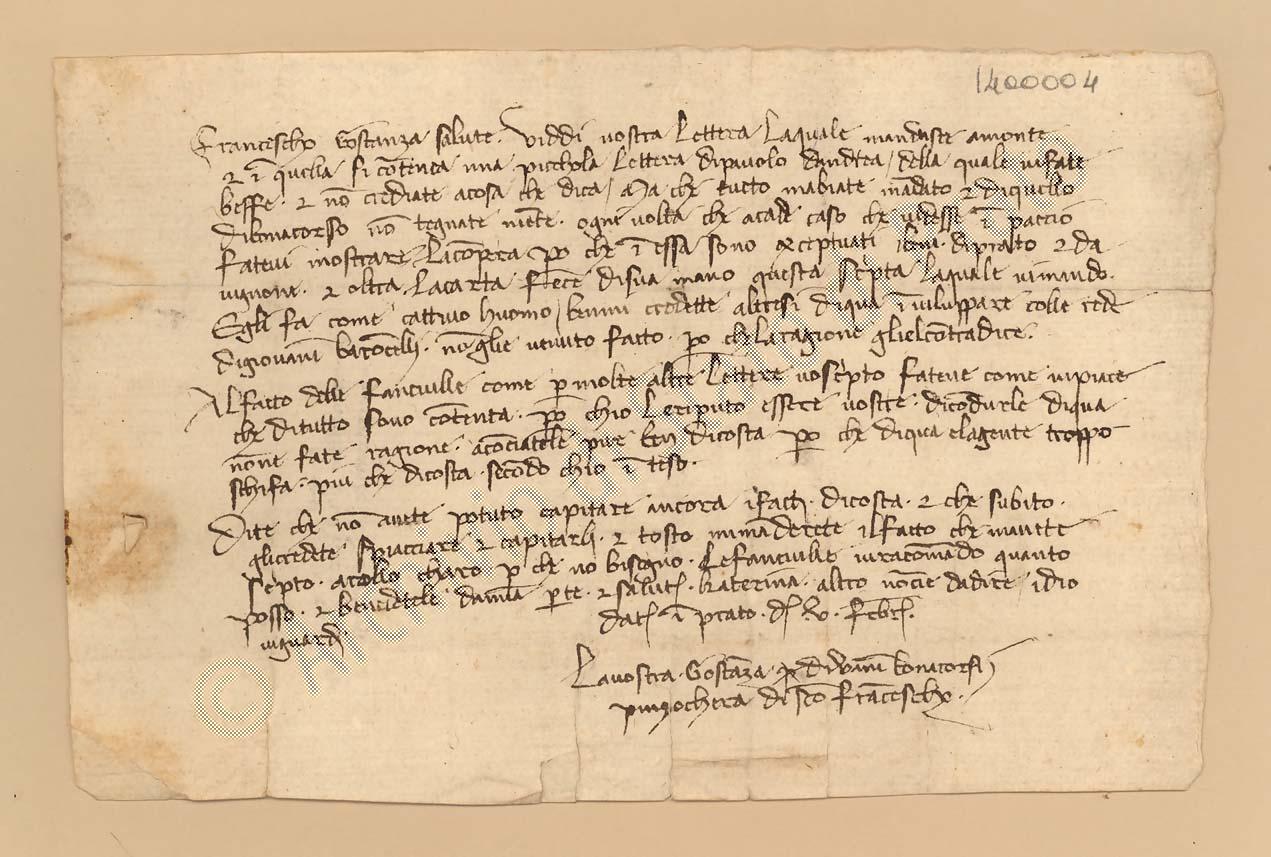 1400004
Franceschο Gostanza salute. Viddi vostra lettera laquale mandaste amonte
⁊ ī quella si cōtenea una picchola lettera dipavolo dandrea / della quale vi fate
beffe. ⁊ nō crediate acosa che dica / Ma che tutto mabiate mādato ⁊ diquello
nō tegnate niēte. ogni volta che acade caso che ī paccio
fatevi mostrare lacōpera po che ī essa sono exceptuati ibeni diprato ⁊ da
vignone. ⁊ oltra lacarta fece disua mano questa scpta laquale vimando.
Egli fa come cattivo huomo / credette altresi diqua īviluppare colle rede
digiovanni nōglie venuto fatto. po chellaragione gliele cōtradice.
Alfatto delle fanciulle come p molte altre lettere voscpto fatene come vipiace
che ditutto sono cōtenta. po chio le riputo essere vostre. dicōdurle diqua
nōne fate ragione. acōciatele pure ben dicosta po che diqua elagente troppo
schifa. piu che dicosta. secōdo chio ī teso.
Dite che nō avete potuto capitare ancora ifacti dicosta. ⁊ che subito.
glicredete spacciare ⁊ capitarli. ⁊ tosto mimāderete ilfatto che mavete
scpto. arollo charo p che no bisogno. Lefanciulle viracomādo quanto
posso. ⁊ benedetele damia pte. ⁊ salutᵉ Katerina. altro nōcie dadire / idio
viguardi. datᵉ ī prato. dì febrᵉ.
Lavostra Gostāza
pinzochera di sco Francescho.
© Archivio di Stato di Prato